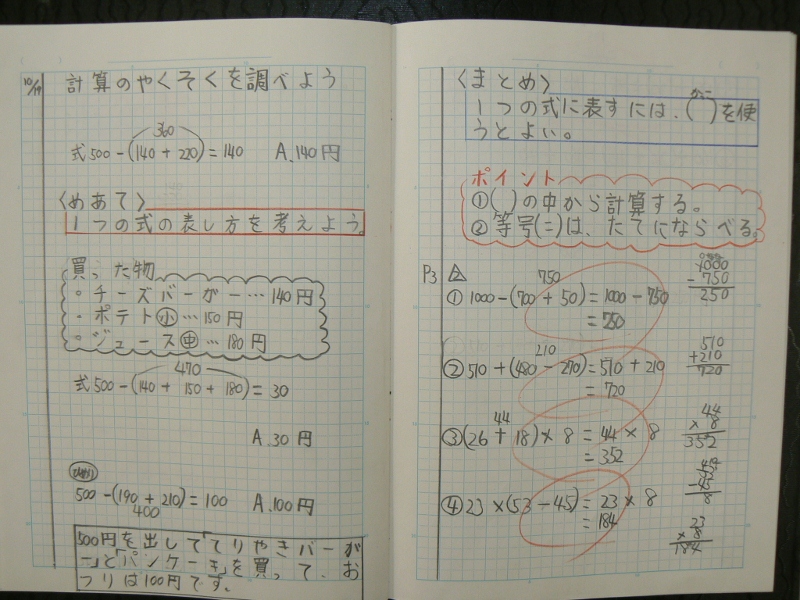 10/19
計算のやくそくを調べよう
360
式 500-(140+220)=140 A.140円
〈めあて〉
1つの式の表し方を考えよう。
買った物
・チーズバーガー…140円
・ポテト小…150円
・ジュース中…180円
470
式 500-(140+150+180)=30
A.30円
500-(190+210)=100 A.100円
400
500円を出して「てりやきバーガ
ー」と「パンケーキ」を買って、お
つりは100円です。
〈まとめ〉
かっこ
1つの式に表すには、( )を使
うとよい。
ポイント
①( )の中から計算する。
②等号(=)は、たてにならべる。
P3 2
750
①1000-(700+50)=1000-750
=250
1000
-750
250
210
②510+(480-270)=510+210
=720
510
+210
720
44
③(26+18)×8=44×8
=352
44
×8
352
④23×(53-45)=23×8
=184
-45
8
23
×8
184